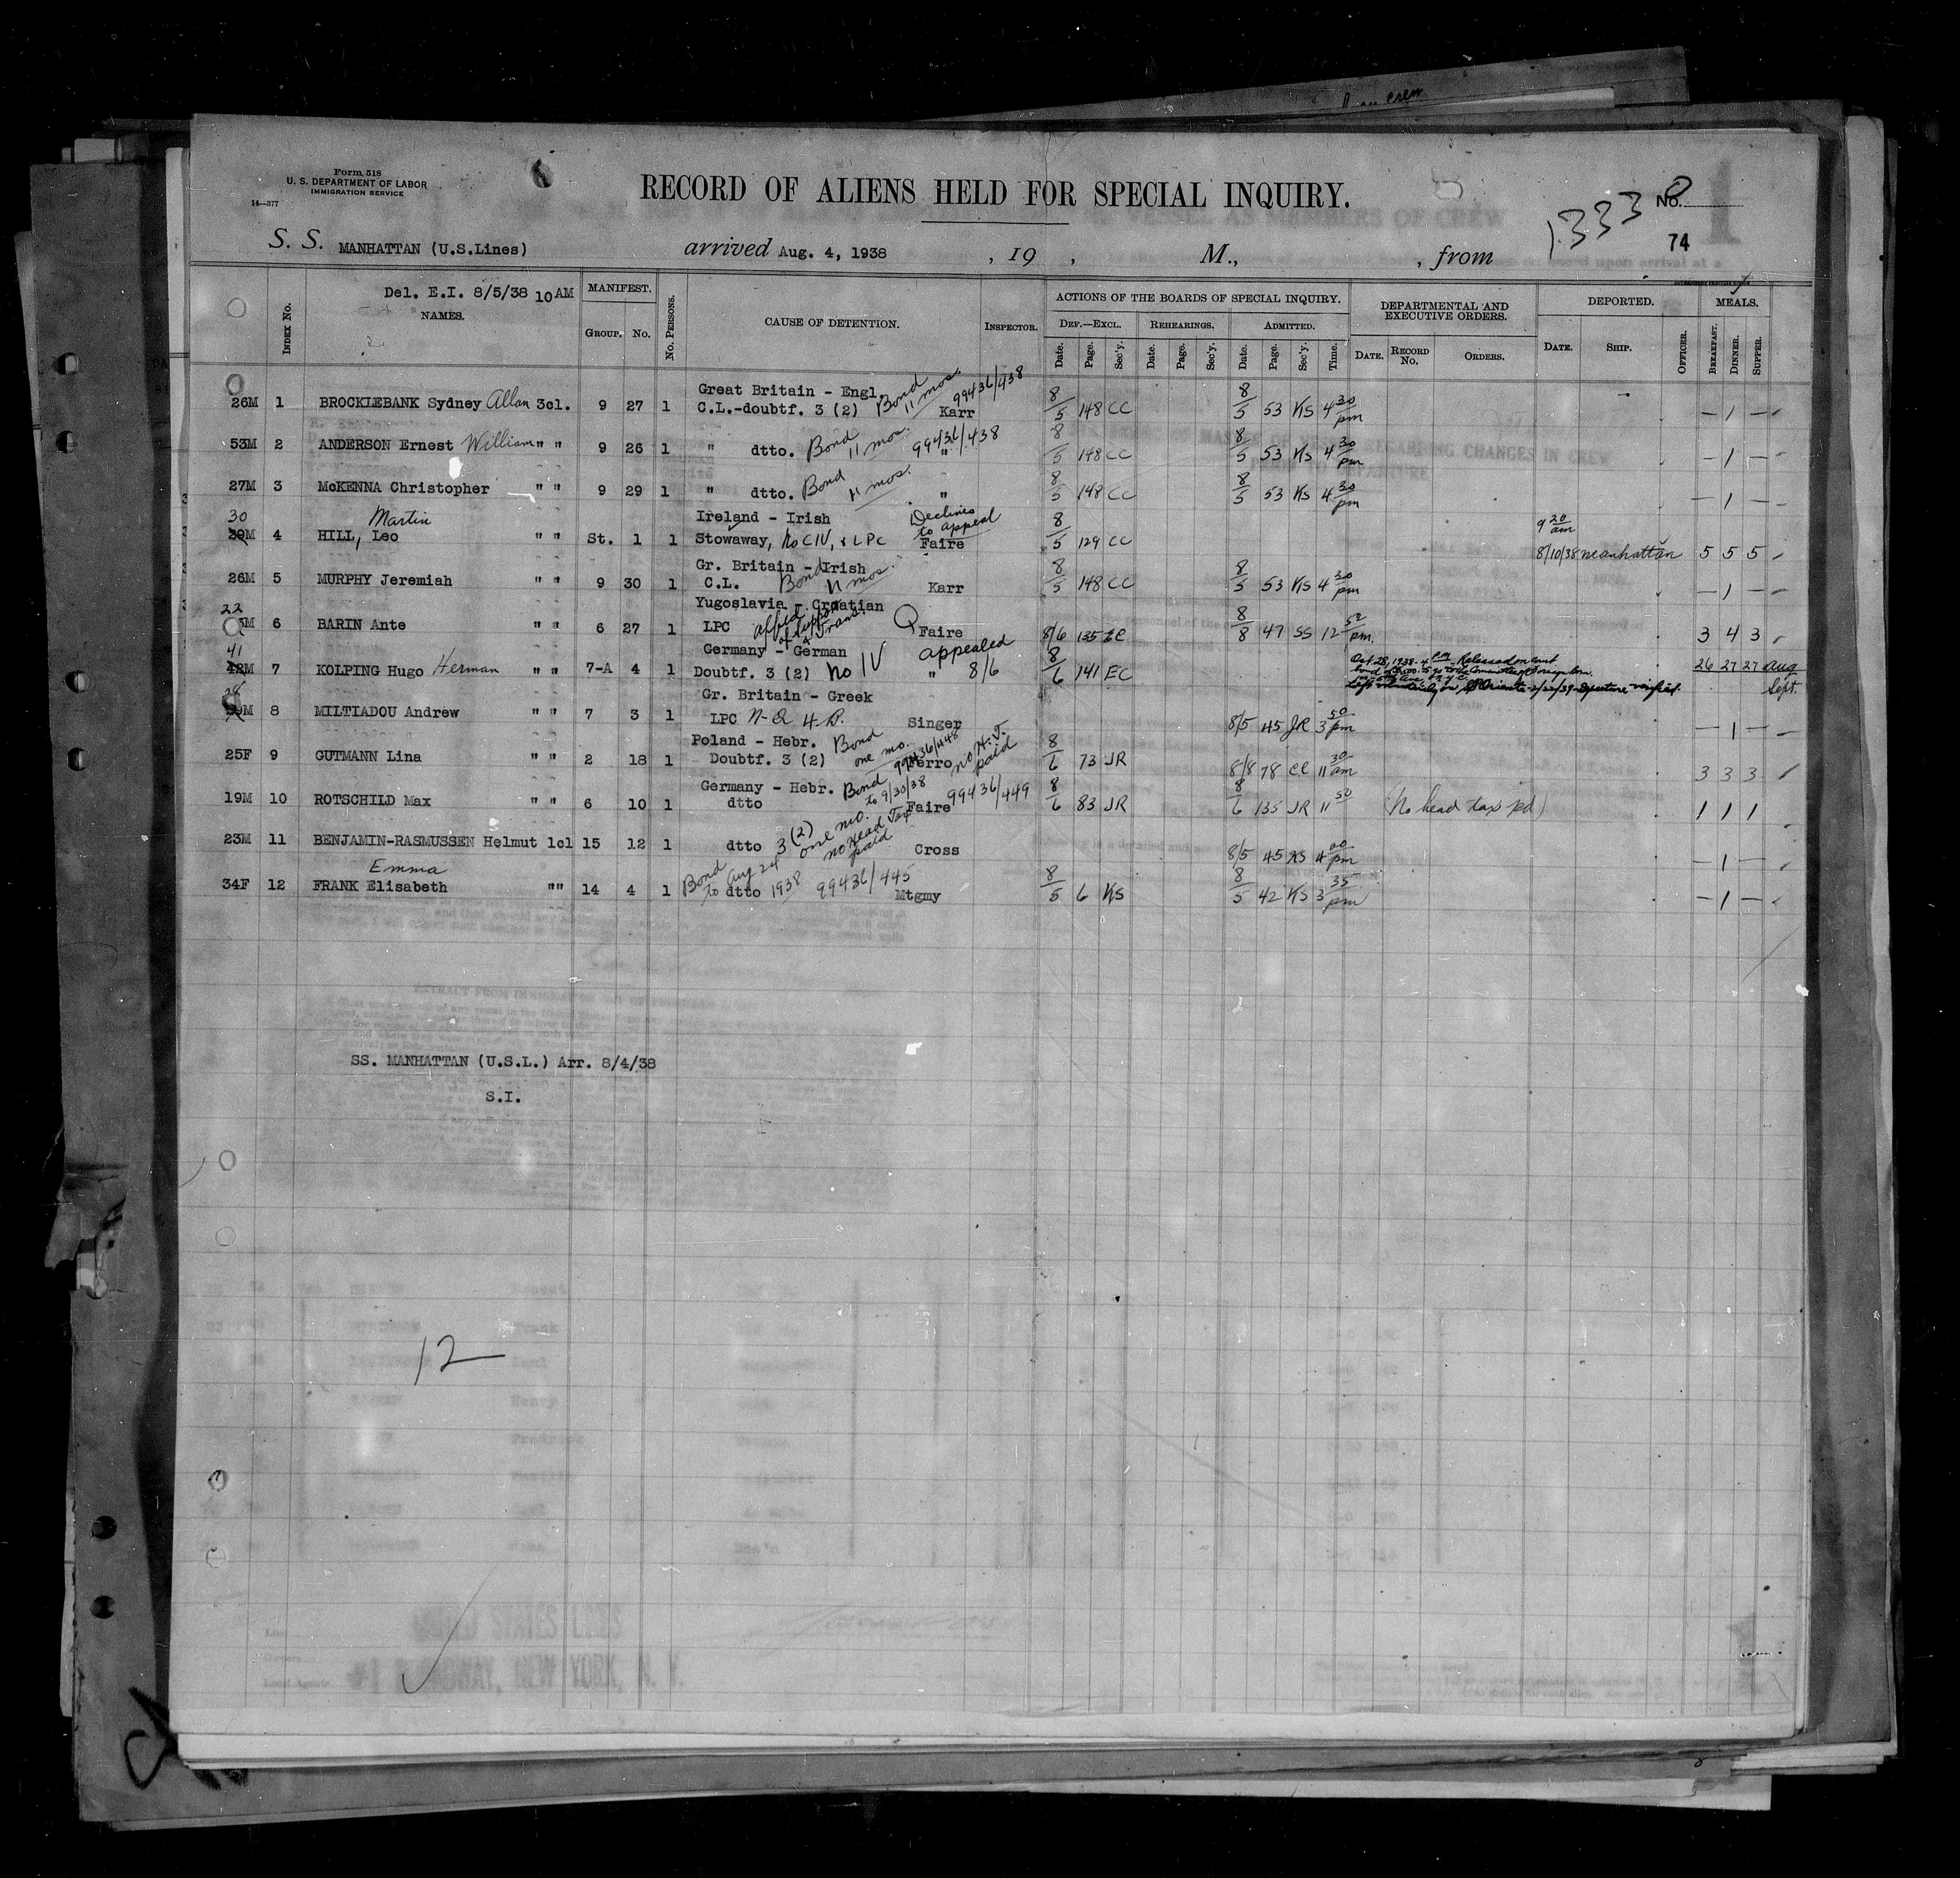 Form 518
U. S. DEPARTMENT OF LABOR
IMMIGRATION SERVICE
14—377
RECORD OF ALIENS HELD FOR SPECIAL INQUIRY.
No. 8
1333
74
S. S. MANHATTAN (U.S.Lines) arrived Aug. 4, 1938 , 19 , M., , from
Del. E.I. 8/5/38 10 AM
INDEX No. NAMES. MANIFEST. GROUP. No. No. PERSONS. CAUSE OF DETENTION. INSPECTOR.
ACTIONS OF THE BOARDS OF SPECIAL INQUIRY. DEPARTMENTAL AND EXECUTIVE ORDERS. DEPORTED. MEALS.
DEF.—EXCL. REHEARINGS. ADMITTED.
Date. Page. Sec'y. Date. Page. Sec'y. Date. Page. Sec'y. Time. DATE. RECORD No. ORDERS. DATE. SHIP. OFFICER. BREAKFAST. DINNER. SUPPER.
Great Britain - Engl. Bond 11 mos. 99436/438
26M 1 BROCKLEBANK Sydney Allan 3cl. 9 27 1 C.L.-doubtf. 3 (2) Karr 8/5 148 CC 8/5 53 KS 4 30 pm — 1 —
53M 2 ANDERSON Ernest William " " 9 26 1 " dtto. Bond 11 mos. 99436/438 " 8/5 148 CC 8/5 53 KS 4 30 pm — 1 —
27M 3 McKENNA Christopher " " 9 29 1 " dtto. Bond 11 mos. " 8/5 148 CC 8/5 53 KS 4 30 pm — 1 —
30 Martin Ireland - Irish Declines to appeal 9 20 am
M 4 HILL, Leo " " St. 1 1 Stowaway, No CIV, & LPC Faire 8/5 129 CC 8/10/38 Manhattan 5 5 5
Gr. Britain - Irish
26M 5 MURPHY Jeremiah " " 9 30 1 C.L. Bond 11 mos. Karr 8/5 148 CC 8/5 53 KS 4 30 pm — 1 —
22 Yugoslavia - Croatian
M 6 BARIN Ante " " 6 27 1 LPC Faire 8/6 135 EC 8/8 47 SS 12 52 pm. 3 4 3
41 Germany - German appealed
42M 7 KOLPING Hugo Herman " " 7-A 4 1 Doubtf. 3 (2) no IV " 8/6 8/6 141 EC Oct 28, 1938 - 4 PM - Released on 26 27 27 Aug
Departure verified. Sept.
Gr. Britain - Greek
M 8 MILTIADOU Andrew " " 7 3 1 LPC Singer 8/5 45 JR 3 50 pm — 1 —
Poland - Hebr. Bond one mo. 99436/448 no H.T. paid
25F 9 GUTMANN Lina " " 2 18 1 Doubtf. 3 (2) 8/6 73 JR 8/8 78 CC 11 30 am 3 3 3
Germany - Hebr. Bond to 9/30/38
19M 10 ROTSCHILD Max " " 6 10 1 dtto Faire 99436/449 8/6 83 JR 8/6 135 JR 11 50 (No head tax pd) 1 1 1
23M 11 BENJAMIN-RASMUSSEN Helmut 1cl 15 12 1 dtto 3 (2) one mo. no Head Tax paid Cross 8/5 45 KS 4 00 pm — 1 —
Emma
34F 12 FRANK Elisabeth "" 14 4 1 Bond to Aug 24 1938 dtto 99436/445 Mtgmy 8/5 6 KS 8/5 42 KS 3 35 pm — 1 —
SS. MANHATTAN (U.S.L.) Arr. 8/4/38
S.I.
12